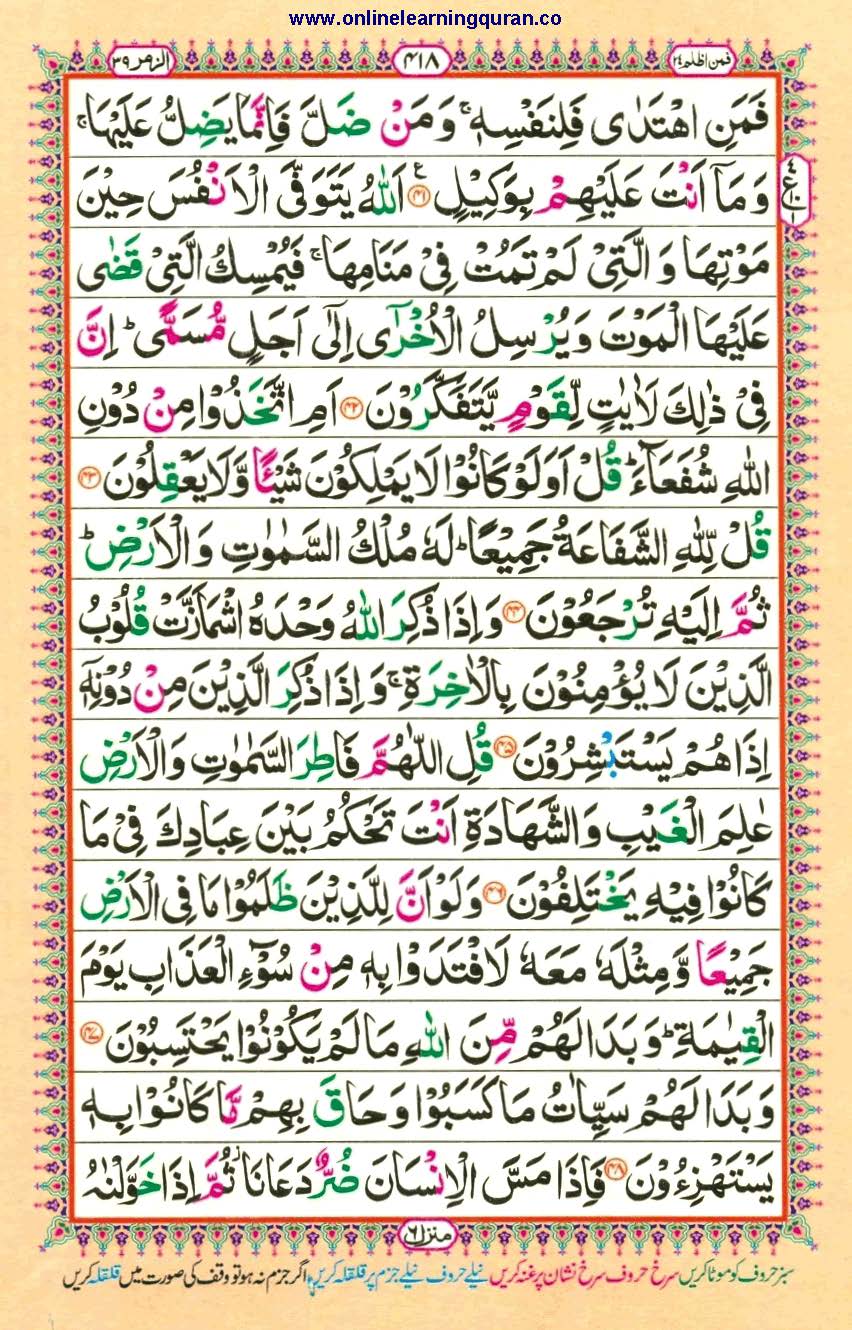 www.onlinelearningquran.co
الزمر ٣٩
٤١٨
فمن اظلم ٢٤
فَمَنِ اهْتَدٰى فَلِنَفْسِهٖ ۚ وَ مَنْ ضَلَّ فَاِنَّمَا يَضِلُّ عَلَيْهَا ۚ
وَ مَاۤ اَنْتَ عَلَيْهِمْ بِوَكِيْلٍ ﴿٤١﴾ ع اَللّٰهُ يَتَوَفَّى الْاَنْفُسَ حِيْنَ
مَوْتِهَا وَ الَّتِيْ لَمْ تَمُتْ فِيْ مَنَامِهَا ۚ فَيُمْسِكُ الَّتِيْ قَضٰى
عَلَيْهَا الْمَوْتَ وَ يُرْسِلُ الْاُخْرٰۤى اِلٰۤى اَجَلٍ مُّسَمًّى ؕ اِنَّ
فِيْ ذٰلِكَ لَاٰيٰتٍ لِّقَوْمٍ يَّتَفَكَّرُوْنَ ﴿٤٢﴾ اَمِ اتَّخَذُوْا مِنْ دُوْنِ
اللّٰهِ شُفَعَآءَ ؕ قُلْ اَوَلَوْ كَانُوْا لَا يَمْلِكُوْنَ شَيْـًٔا وَّ لَا يَعْقِلُوْنَ ﴿٤٣﴾
قُلْ لِّلّٰهِ الشَّفَاعَةُ جَمِيْعًا ؕ لَهٗ مُلْكُ السَّمٰوٰتِ وَ الْاَرْضِ ؕ
ثُمَّ اِلَيْهِ تُرْجَعُوْنَ ﴿٤٤﴾ وَ اِذَا ذُكِرَ اللّٰهُ وَحْدَهُ اشْمَاَزَّتْ قُلُوْبُ
الَّذِيْنَ لَا يُؤْمِنُوْنَ بِالْاٰخِرَةِ ۚ وَ اِذَا ذُكِرَ الَّذِيْنَ مِنْ دُوْنِهٖۤ
اِذَا هُمْ يَسْتَبْشِرُوْنَ ﴿٤٥﴾ قُلِ اللّٰهُمَّ فَاطِرَ السَّمٰوٰتِ وَ الْاَرْضِ
عٰلِمَ الْغَيْبِ وَ الشَّهَادَةِ اَنْتَ تَحْكُمُ بَيْنَ عِبَادِكَ فِيْ مَا
كَانُوْا فِيْهِ يَخْتَلِفُوْنَ ﴿٤٦﴾ وَ لَوْ اَنَّ لِلَّذِيْنَ ظَلَمُوْا مَا فِي الْاَرْضِ
جَمِيْعًا وَّ مِثْلَهٗ مَعَهٗ لَافْتَدَوْا بِهٖ مِنْ سُوْٓءِ الْعَذَابِ يَوْمَ
الْقِيٰمَةِ ؕ وَ بَدَا لَهُمْ مِّنَ اللّٰهِ مَا لَمْ يَكُوْنُوْا يَحْتَسِبُوْنَ ﴿٤٧﴾
وَ بَدَا لَهُمْ سَيِّاٰتُ مَا كَسَبُوْا وَ حَاقَ بِهِمْ مَّا كَانُوْا بِهٖ
يَسْتَهْزِءُوْنَ ﴿٤٨﴾ فَاِذَا مَسَّ الْاِنْسَانَ ضُرٌّ دَعَانَا ؗ ثُمَّ اِذَا خَوَّلْنٰهُ
منزل ٦
سبز حروف کو موٹا کریں سرخ حروف سرخ نشان پر غنہ کریں نیلے حروف نیلے جزم پر قلقلہ کریں اگر جزم نہ ہو تو وقف کی صورت میں قلقلہ کریں